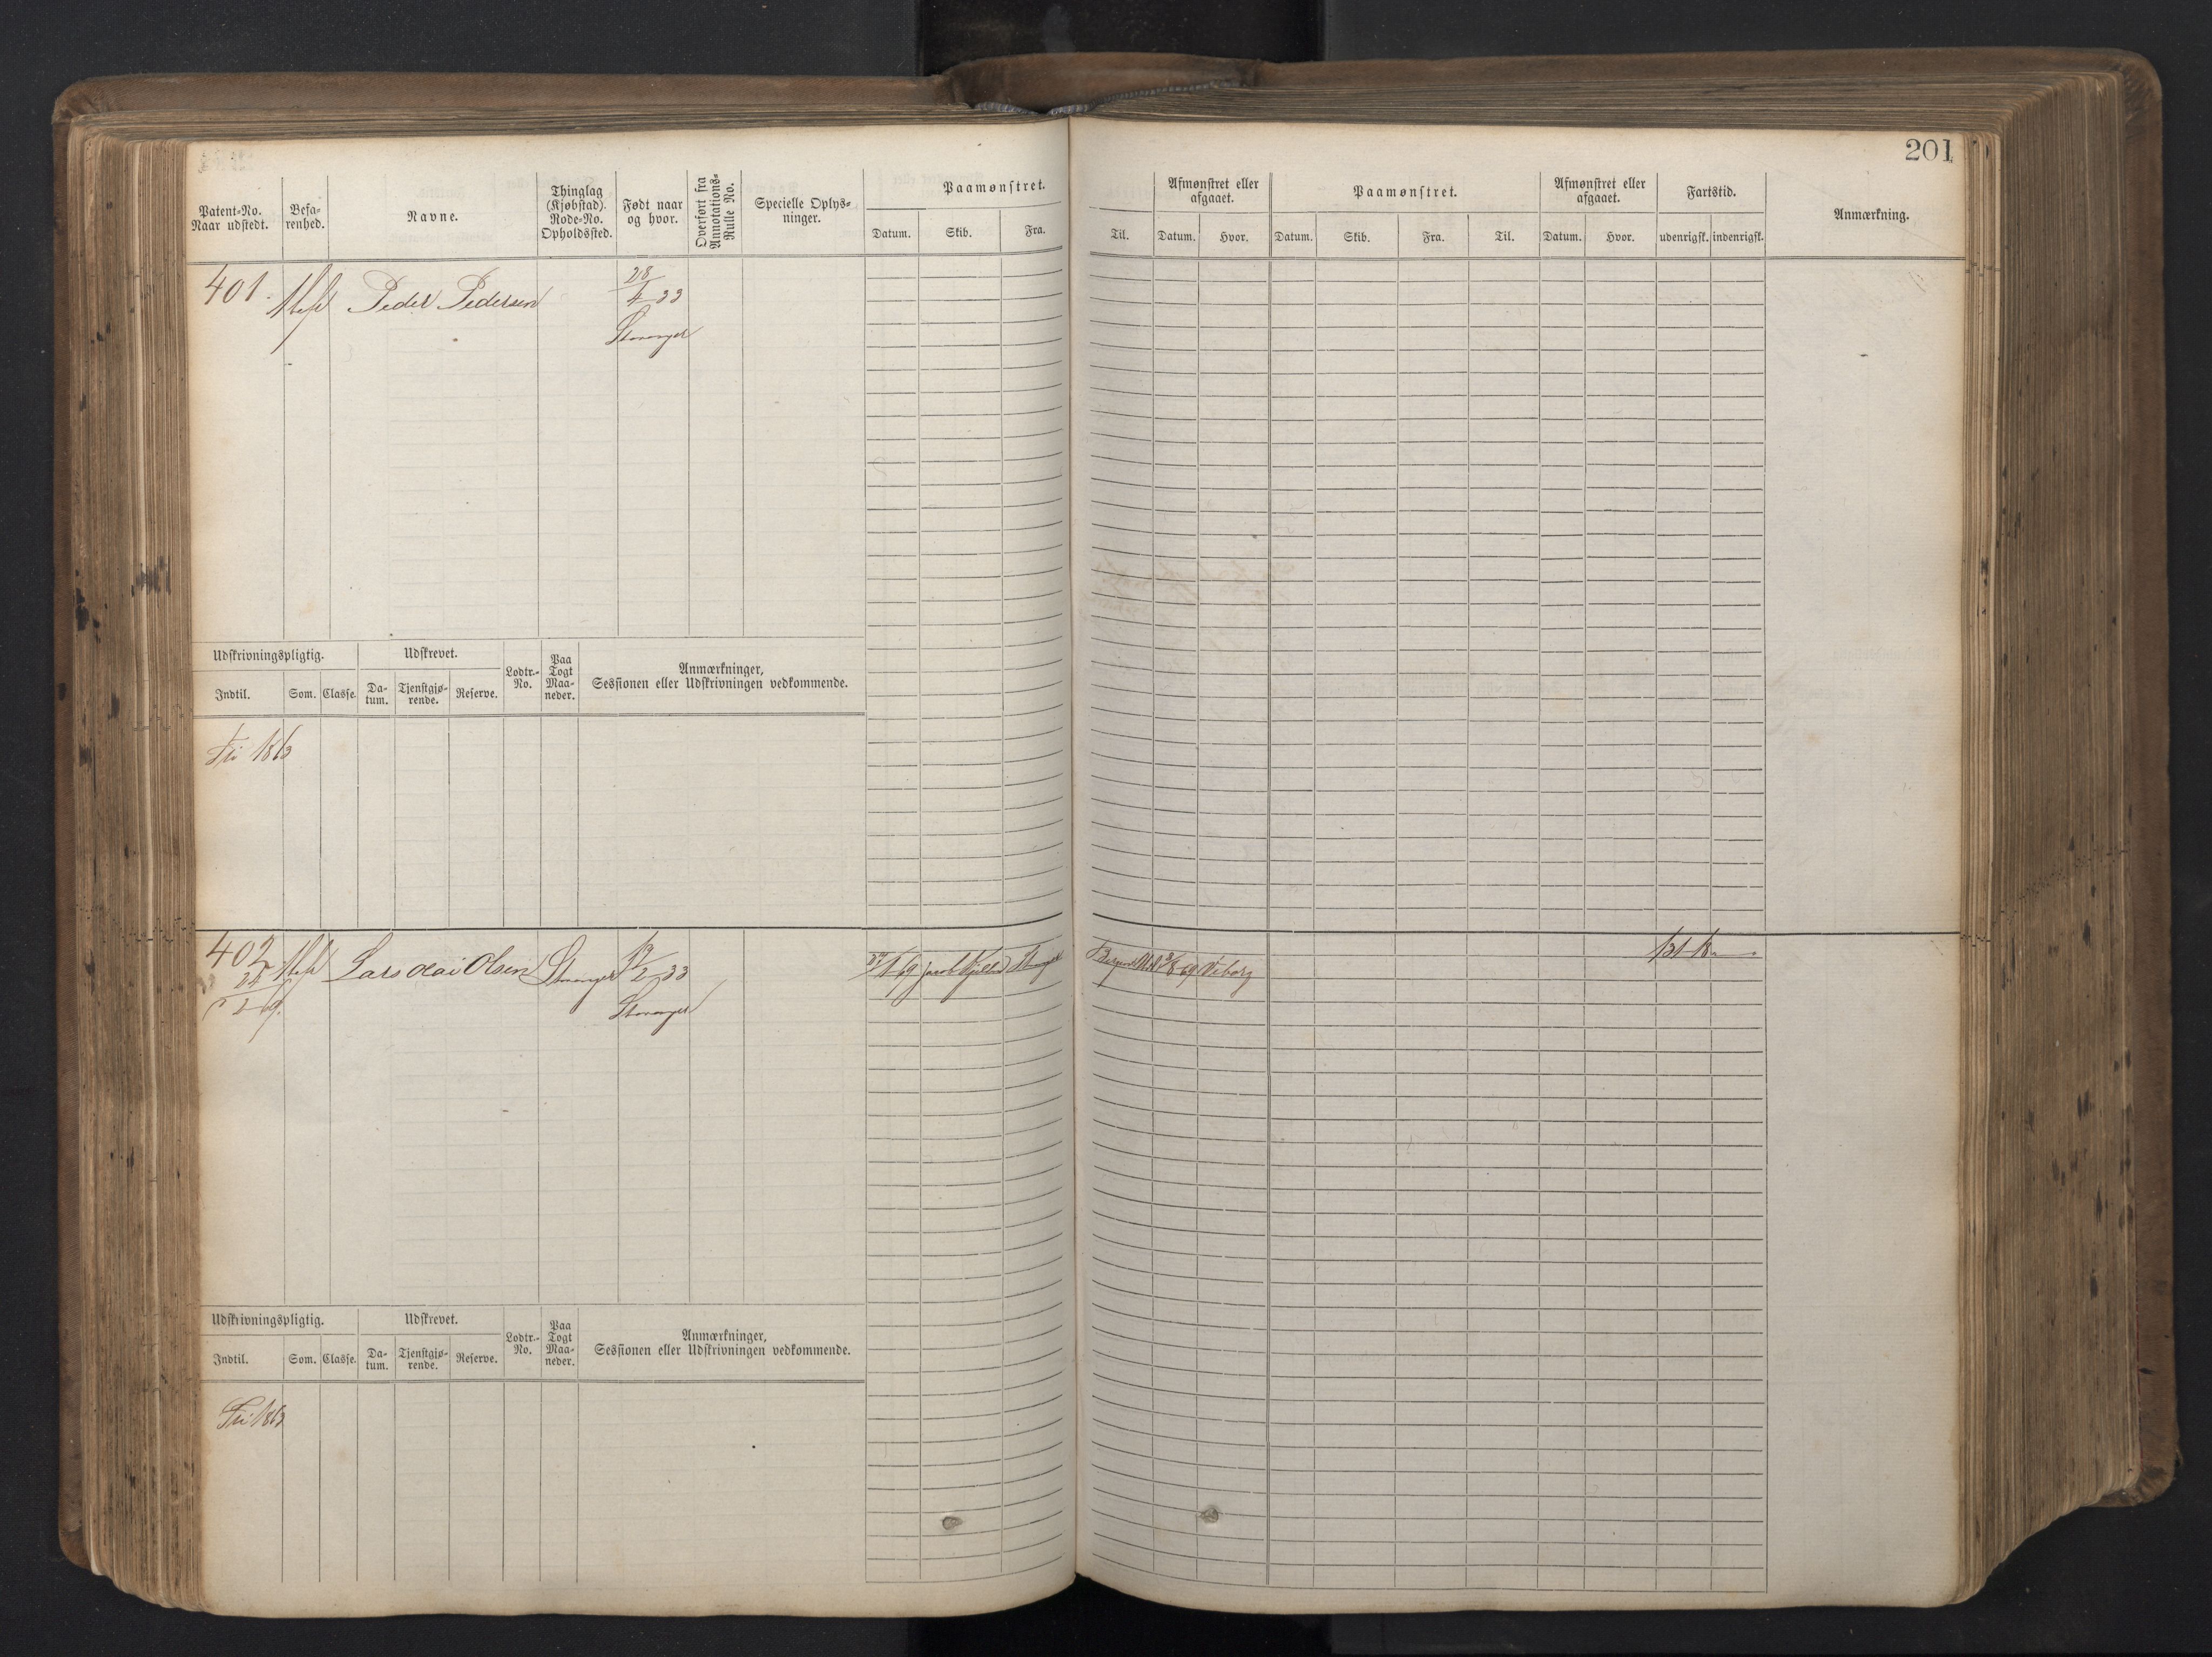 201
Patent-No. Naar udstedt.
Befa-renhed.
Navne.
Thinglag (Kjøbstad). Rode-No. Opholdssted.
Født naar og hvor.
Overført fra Annotations-Rulle No.
Specielle Oplys-ninger.
Paamønstret.
Datum. Skib. Fra.
Til.
Afmønstret eller afgaaet.
Datum. Hvor.
Paamønstret.
Datum. Skib. Fra. Til.
Afmønstret eller afgaaet.
Datum. Hvor.
Fartstid.
udenrigsk. indenrigsk.
Anmærkning.
401. Peder Pedersen 28/4 33
Stavanger
Udskrivningspligtig.
Indtil. Som. Classe.
Udskrevet.
Da-tum. Tjenstgjø-rende. Reserve.
Lodtr.-No.
Paa Togt Maa-neder.
Anmærkninger,
Sessionen eller Udskrivningen vedkommende.
Fri 1863
402 Lars Olai Olsen Stavanger 19/2 33
Stavanger
Jacob Kjelland Stavanger
3/8 69 Viborg
Udskrivningspligtig.
Indtil. Som. Classe.
Udskrevet.
Da-tum. Tjenstgjø-rende. Reserve.
Lodtr.-No.
Paa Togt Maa-neder.
Anmærkninger,
Sessionen eller Udskrivningen vedkommende.
Fri 1863